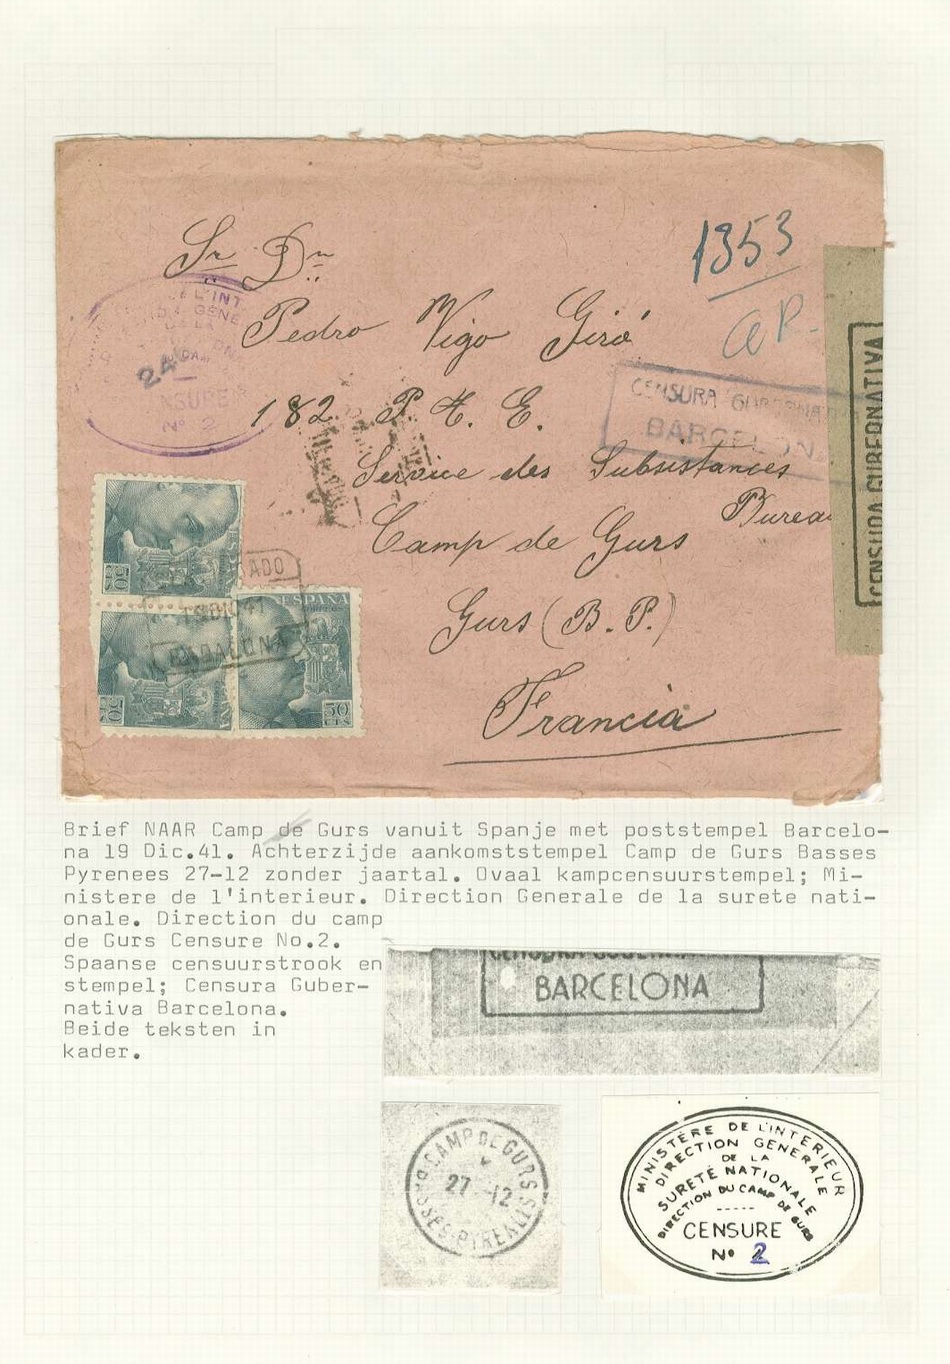 1353
Sr Dn
Pedro Vigo Giró
182 P. T. E.
Service des Subsistances
Bureau
Camp de Gurs
Gurs (B. P.)
Francia
NSURE
Nº 2
CENSURA GUBERNA
BARCELON
CENSURA GUBERNATIVA
ESPAÑA
50
CTS
Brief NAAR Camp de Gurs vanuit Spanje met poststempel Barcelo-
na 19 Dic.41. Achterzijde aankomststempel Camp de Gurs Basses
Pyrenees 27-12 zonder jaartal. Ovaal kampcensuurstempel; Mi-
nistere de l'interieur. Direction Generale de la surete nati-
onale. Direction du camp
de Gurs Censure No.2.
Spaanse censuurstrook en
stempel; Censura Guber-
nativa Barcelona.
Beide teksten in
kader.
BARCELONA
CAMP DE GURS
27 -12
MINISTÈRE DE L'INTERIEUR
DIRECTION GENERALE
DE LA
SURETÉ NATIONALE
DIRECTION DU CAMP DE GURS
-----
CENSURE
Nº 2